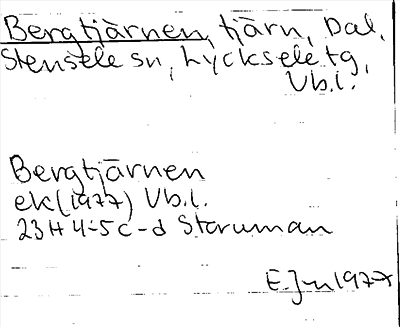 Bergtjärnen, tjärn, Dal,
Stensele sn, Lycksele tg,
Vb.l.
Bergtjärnen
ek (1977) Vb.l.
23H 4-5 c-d Storuman
E.Jn 1977